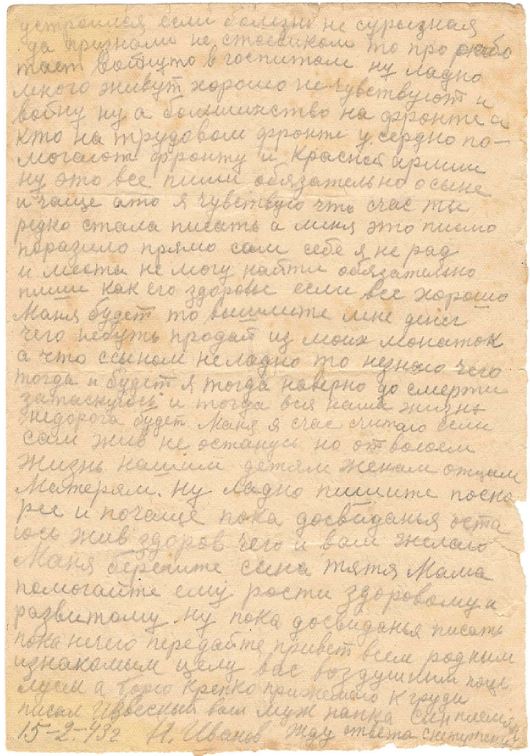 устроился если болезнь не сурьезная
да признали не стоевиком то про рабо
тает вотнуто в госпитали ну ладно
много живут хорошо не чувствуют и
войну ну а большинство на фронте а
кто на трудовом фронте усердно по-
могают фронту и Красной армии
ну это все пиши обязательно о сыне
и чаще а то я чувствую что счас ты
редко стала писать а меня это письмо
поразило прямо сам себе я не рад
и места не могу найти обязательно
пиши как его здоровье если все хорошо
Маня будет то вышлите мне денег
чего небуть продай из моих монаток
а что сыном неладно то незнаю чего
тогда и будет я тогда наверно до смерти
затаскуюсь и тогда вся наша жизнь
недорога будет Маня я счас считаю если
сам жив не останусь но отвоюем
жизнь нашим детям женам отцам
матерям. ну ладно пишите поско
рее и почаще пока досвиданья оста
юсь жив здоров чего и вам желаю
Маня берегите сына тятя мама
помогайте ему рости здоровому и
развитому ну пока досвиданья писать
пока нечего передайте привет всем родным
и знакомым целую вас воздушным поце
луем а Борю крепко прижимаю к груди
писал Известный вам муж папка сын
15-2-43г И. Иванов Жду ответа